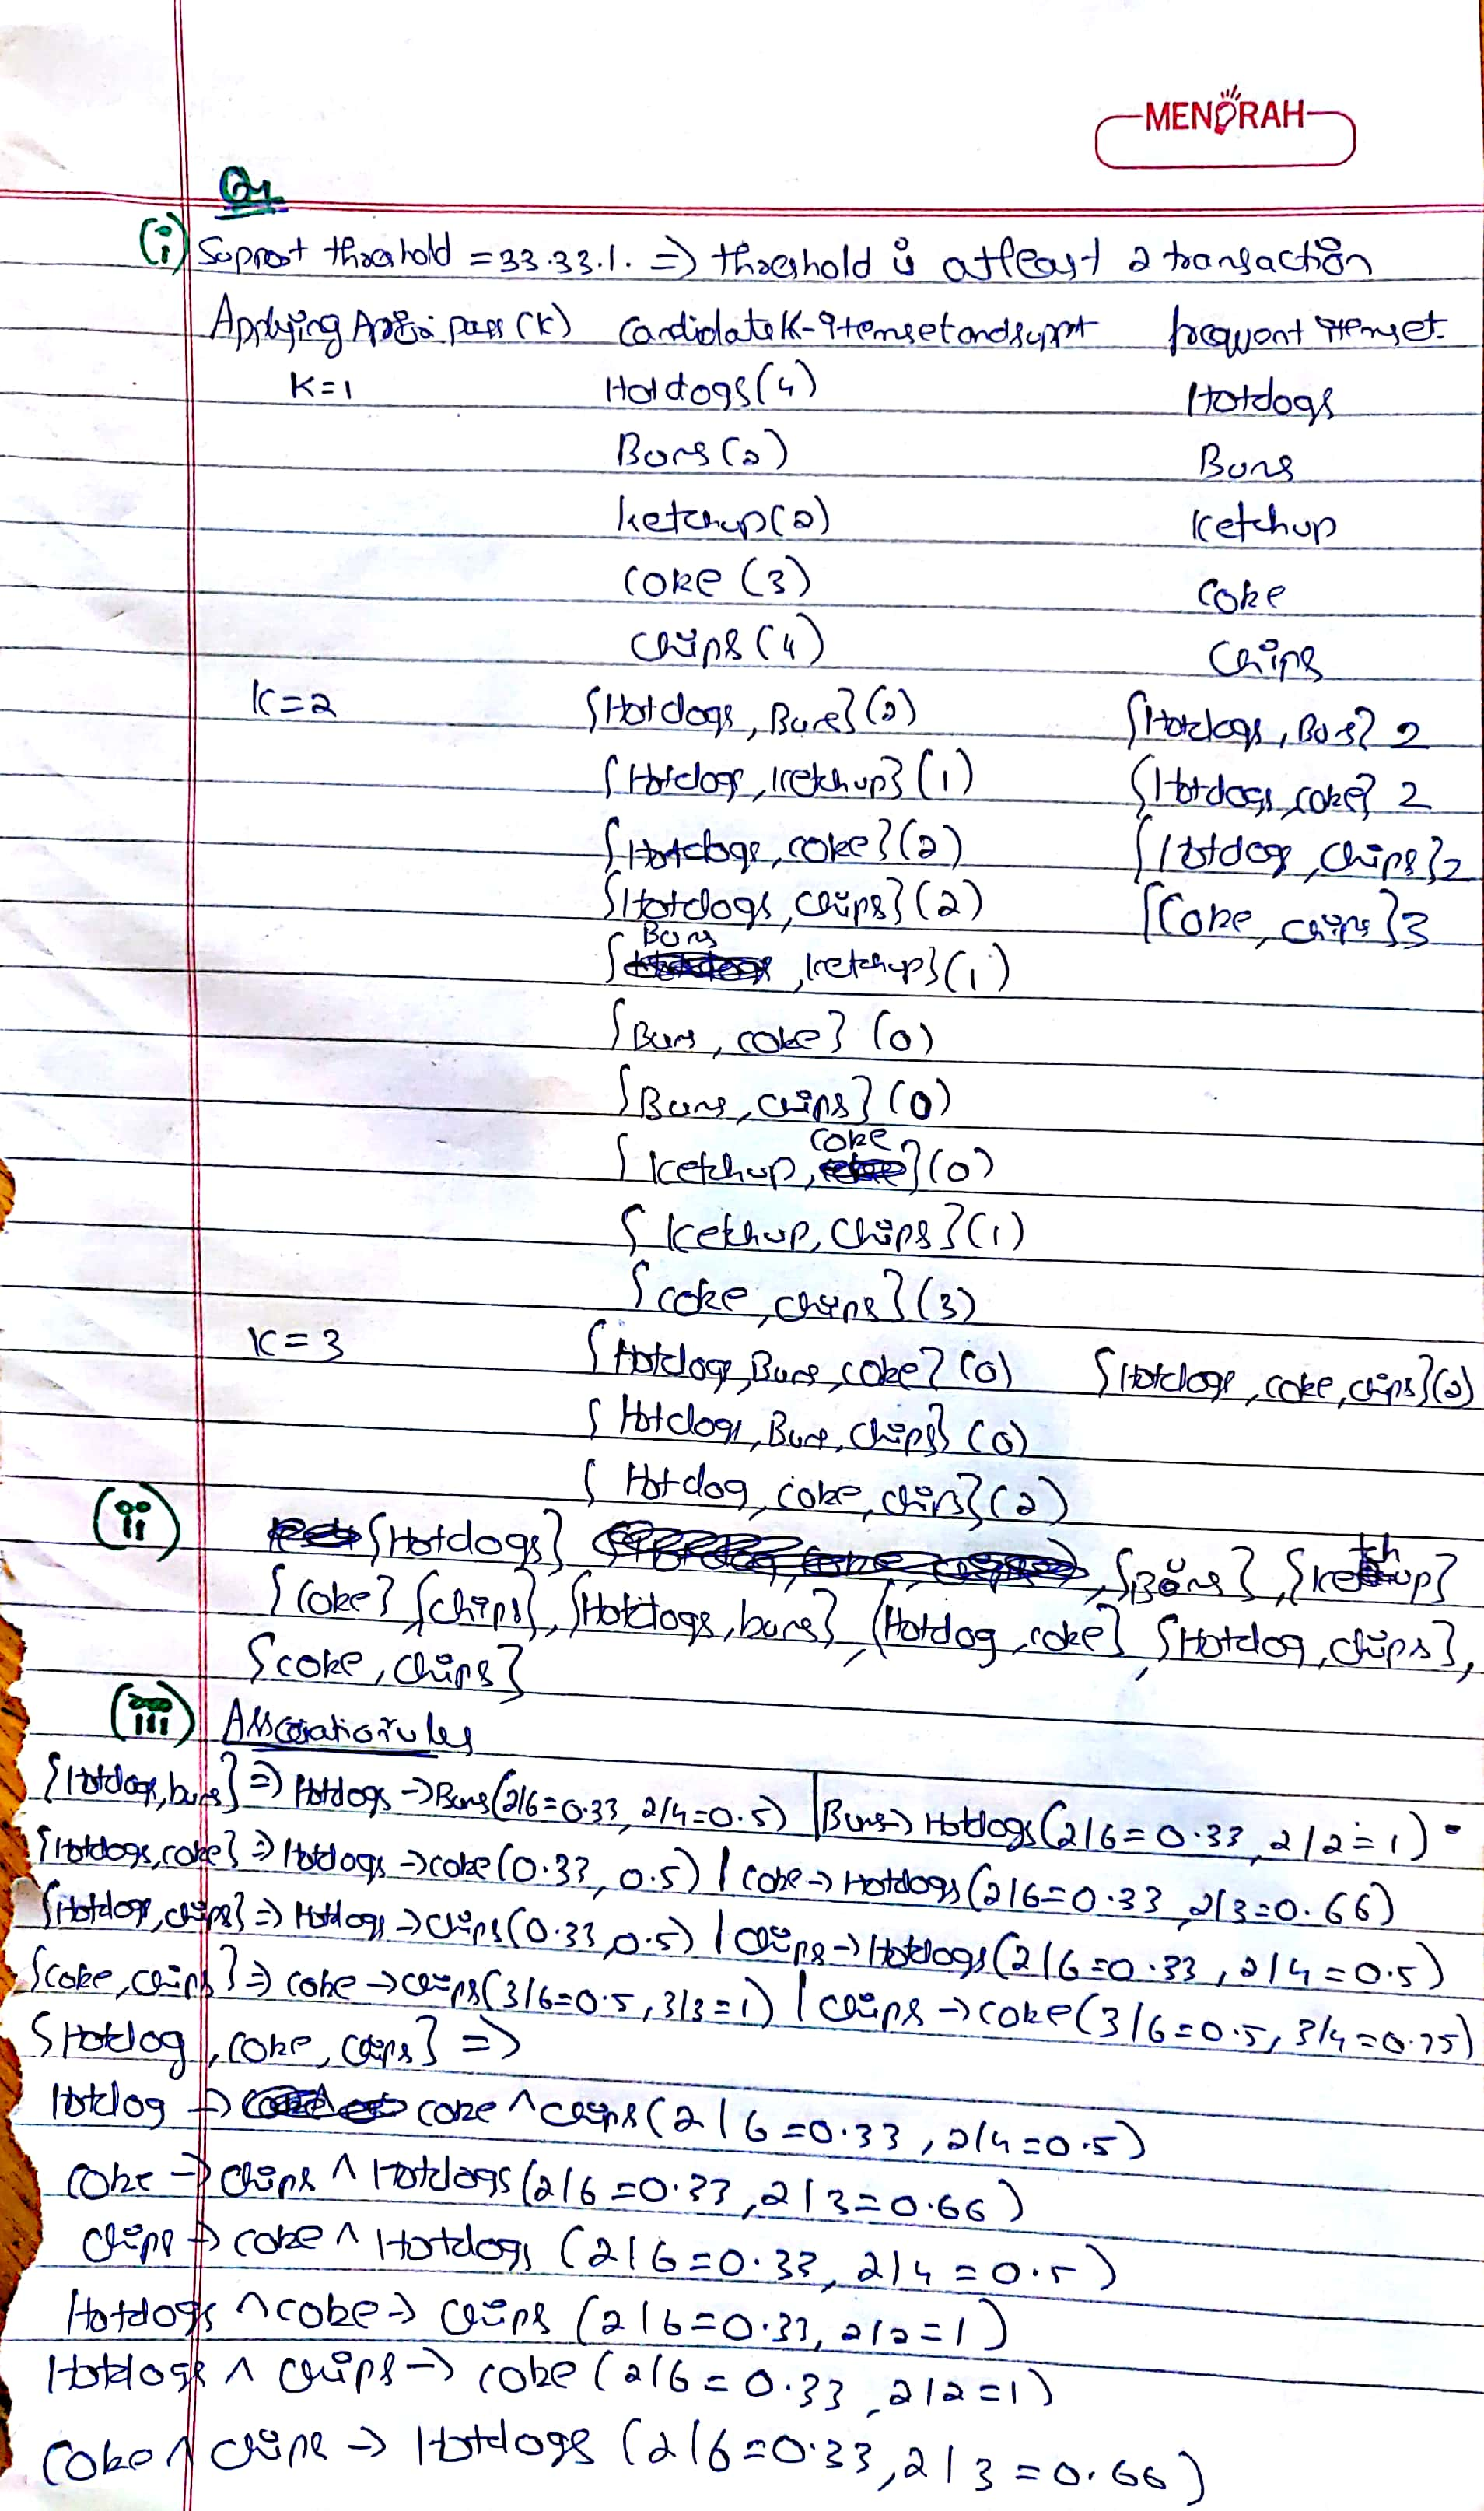 MENORAH
Q1
(i) Support threshold = 33.33.1. => threshold is atleast 2 transaction
Applying pass (K) Candidate K-itemset and frequent itemset.
K=1 Hotdogs(4) Hotdogs
Buns(2) Buns
ketchup(2) Ketchup
Coke (3) Coke
Chips (4) Chips
K=2 {Hotdogs, Buns}(2) {Hotdogs, Buns} 2
{Hotdogs, ketchup}(1) {Hotdogs, coke} 2
{Hotdogs, coke}(2) {Hotdog, Chips}2
{Hotdogs, Chips}(2) {Coke, chips}3
{Buns, ketchup}(1)
{Buns, coke} (0)
{Buns, chips} (0)
{ketchup, coke}(0)
{Ketchup, Chips}(1)
{coke, chips}(3)
K=3 {Hotdogs, Buns, coke} (0) {Hotdogs, coke, chips}(2)
{Hotdogs, Buns, chips} (0)
{Hotdog, coke, chips}(2)
(ii) {Hotdogs}, {Buns}, {Ketchup}
{Coke} {Chips}, {Hotdogs, buns}, {Hotdog, coke}, {Hotdog, chips},
{coke, chips}
(iii) Association rules
{Hotdogs, buns} => Hotdogs -> Buns(2/6=0.33, 2/4=0.5) | Buns -> Hotdogs(2/6=0.33, 2/2=1)
{Hotdogs, coke} => Hotdogs -> coke(0.33, 0.5) | Coke -> Hotdogs(2/6=0.33, 2/3=0.66)
{Hotdogs, chips} => Hotdogs -> Chips(0.33, 0.5) | Chips -> Hotdogs(2/6=0.33, 2/4=0.5)
{coke, chips} => coke -> chips(3/6=0.5, 3/3=1) | Chips -> coke(3/6=0.5, 3/4=0.75)
{Hotdog, coke, chips} =>
Hotdog -> coke ^ chips(2/6=0.33, 2/4=0.5)
Coke -> chips ^ Hotdogs(2/6=0.33, 2/3=0.66)
Chips -> coke ^ Hotdogs (2/6=0.33, 2/4=0.5)
Hotdogs ^ coke -> Chips (2/6=0.33, 2/2=1)
Hotdogs ^ Chips -> coke (2/6=0.33, 2/2=1)
Coke ^ Chips -> Hotdogs (2/6=0.33, 2/3=0.66)